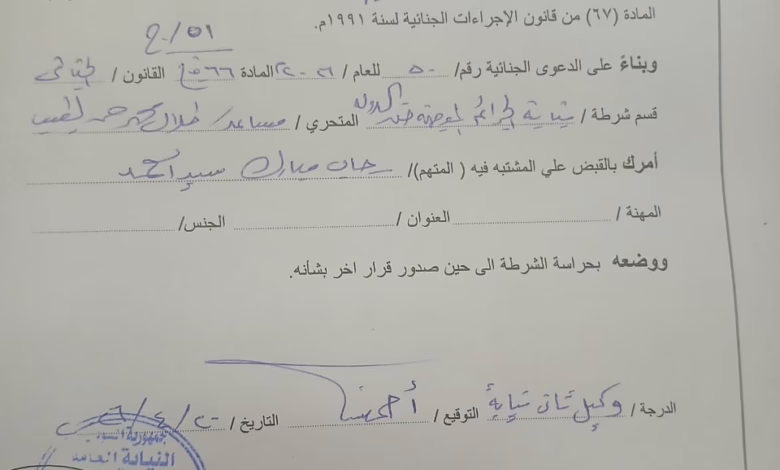 المادة (٦٧) من قانون الإجراءات الجنائية لسنة ١٩٩١م.
وبناءً على الدعوى الجنائية رقم/ ٥٠ للعام / ٢٠٢٦ المادة ٦٦ القانون / الجنائي
قسم شرطة / نيابة الجرائم الموجهة ضد الدولة المتحري / مساعد / طلال
أمرك بالقبض علي المشتبه فيه ( المتهم)/ مبارك سيد احمد
المهنة / العنوان / الجنس/
ووضعه بحراسة الشرطة الى حين صدور قرار اخر بشأنه.
الدرجة / وكيل ثاني نيابة التوقيع / التاريخ /
جمهورية السودان
النيابة العامة